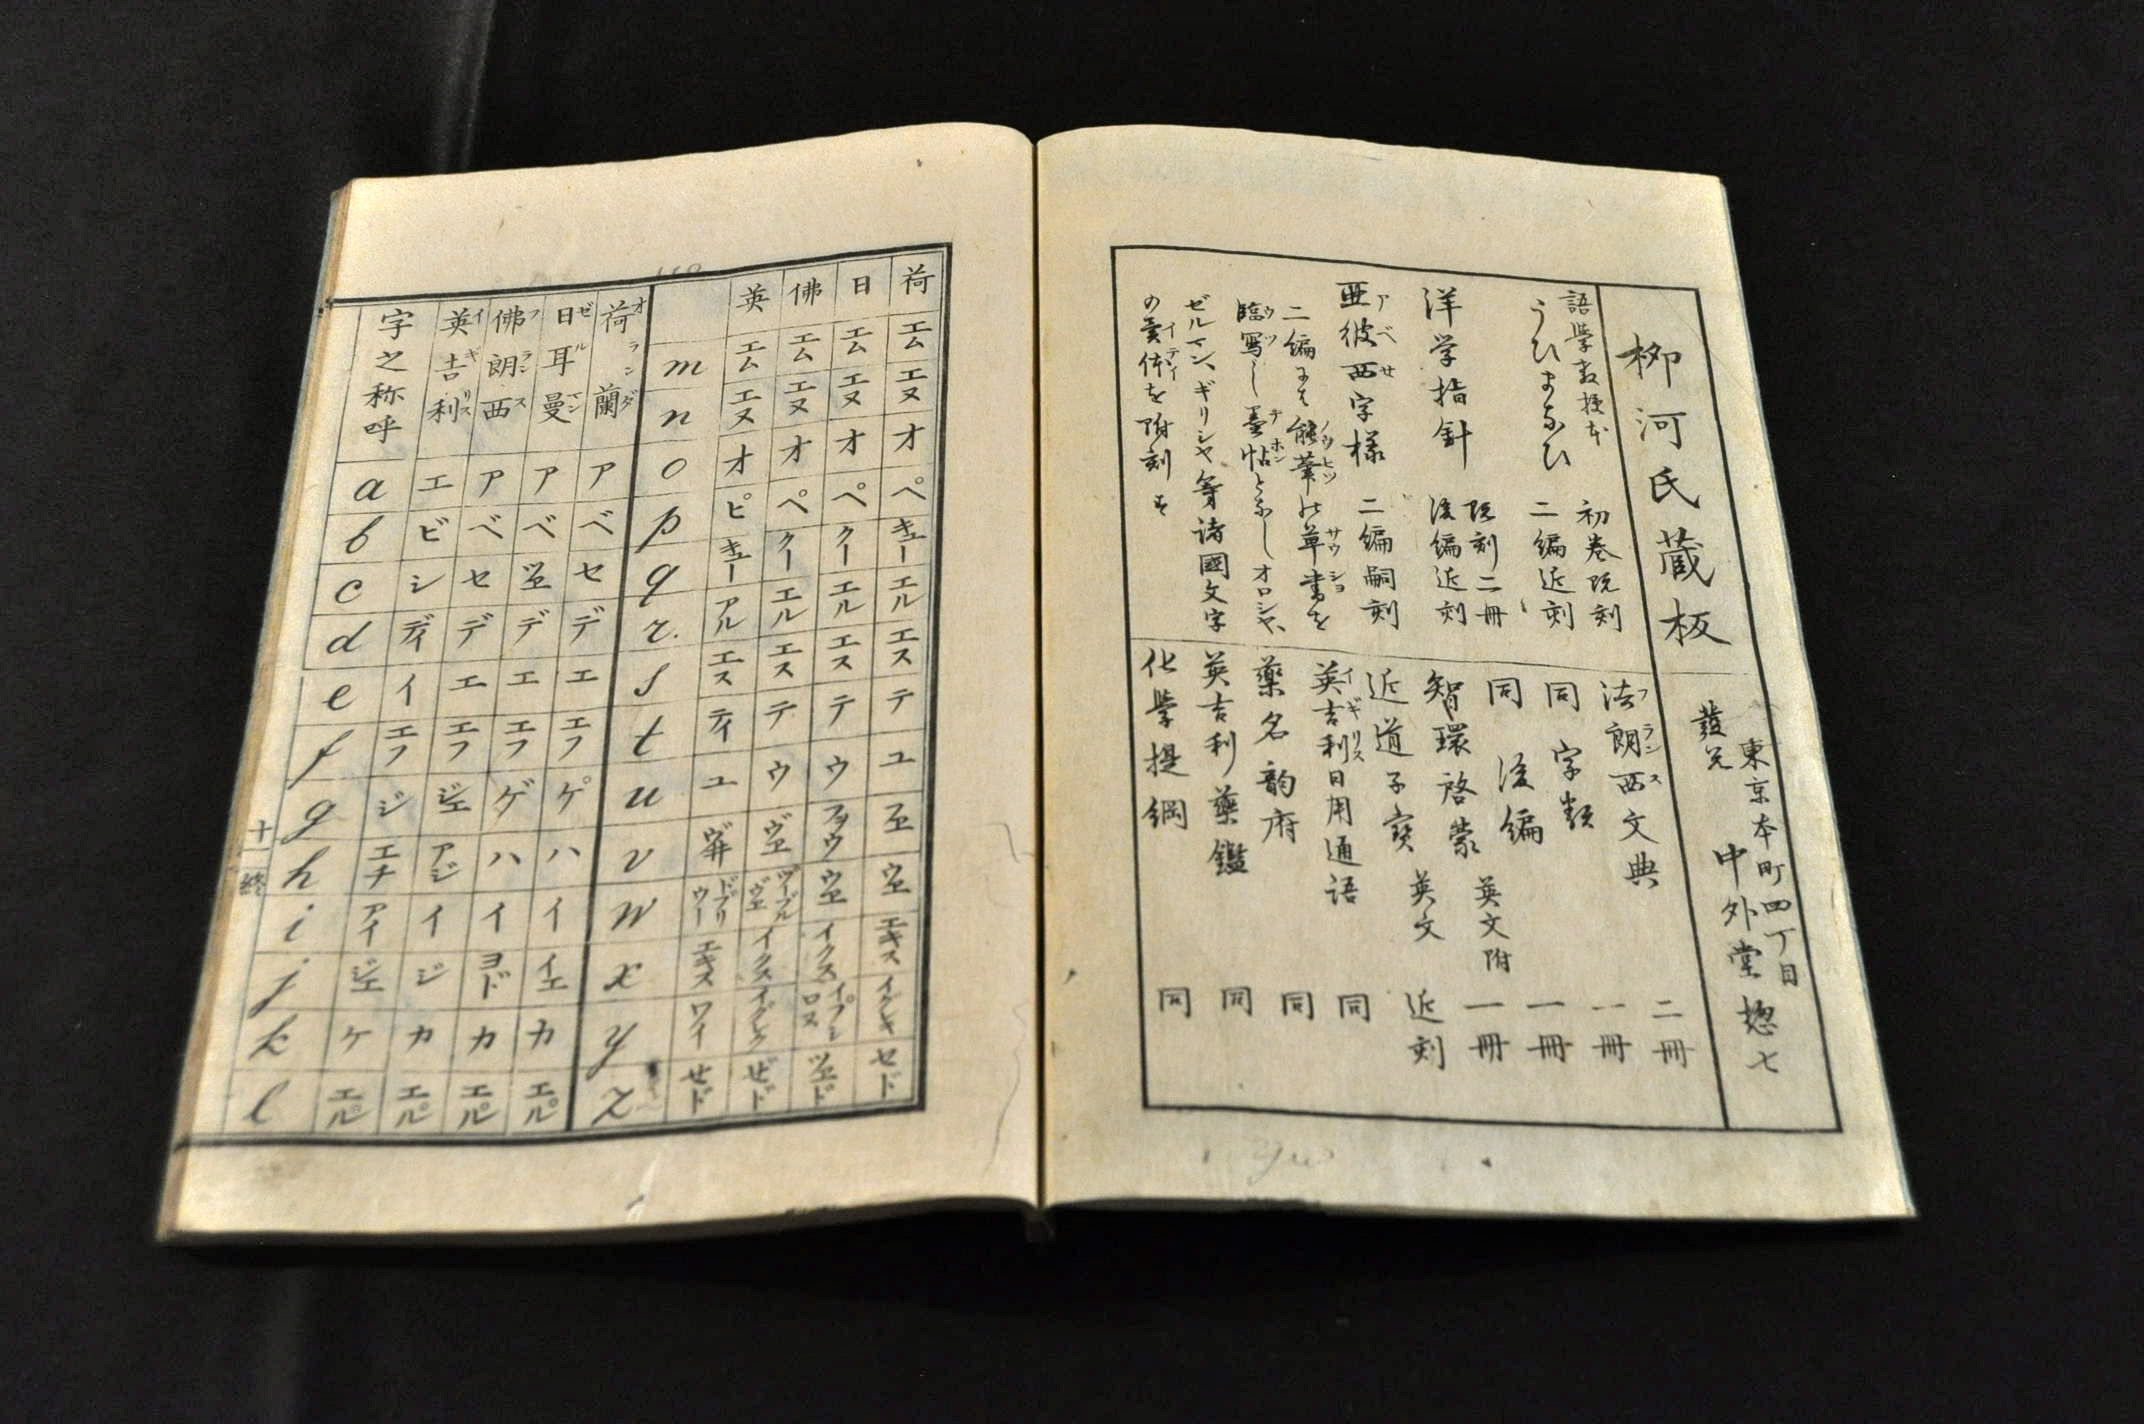 柳河氏蔵板
東京本町四丁目
發兌 中外堂 惣七
語学教授本
うひまなひ 初巻既刻 二編近刻
洋学指針 既刻二冊 後編近刻
亜彼西字様 二編嗣刻
アベセ
二編にハ能筆の草書を
ノウヒツ サウショ
臨写し墨帖となしオロシヤ、
ウツ テホン
ゼルマン、ギリシヤ等諸國文字
の異体を附刻す
イテイ
法朗西文典 二冊
フランス
同 字類 一冊
同 後編 一冊
智環啓蒙 英文附 一冊
近道子寳 英文 近刻
英吉利日用通語 同
イギリス
藥名韵府 同
英吉利藥鑑 同
化學提綱 同
荷 日 佛 英
エム エム エム エム m
エヌ エヌ エヌ エヌ n
オ オ オ オ o
ペ ペ ペ ピ p
キュー クー クー キュー q
エル エル エル アル r.
エス エス エス エス s
テ テ テ ティ t
ユ ウ ウ ユ u
v
w
エキス イクス イクス エキス x
ワイ y
セド z
荷蘭 日耳曼 佛朗西 英吉利 字之称呼
オランダ ゼルマン フランス イギリス
ア ア ア エ a
ベ ベ ベ ビ b
セ セ シ c
デ デ デ ディ d
エ エ エ イ e
エフ エフ エフ エフ f
ゲ ゲ ジェ ジ g
ハ ハ アジ エチ h
イ イ イ アイ i
イエ ヨド ジ ジェ j
カ カ カ ケ k
エル エル エル エル l
十一 終